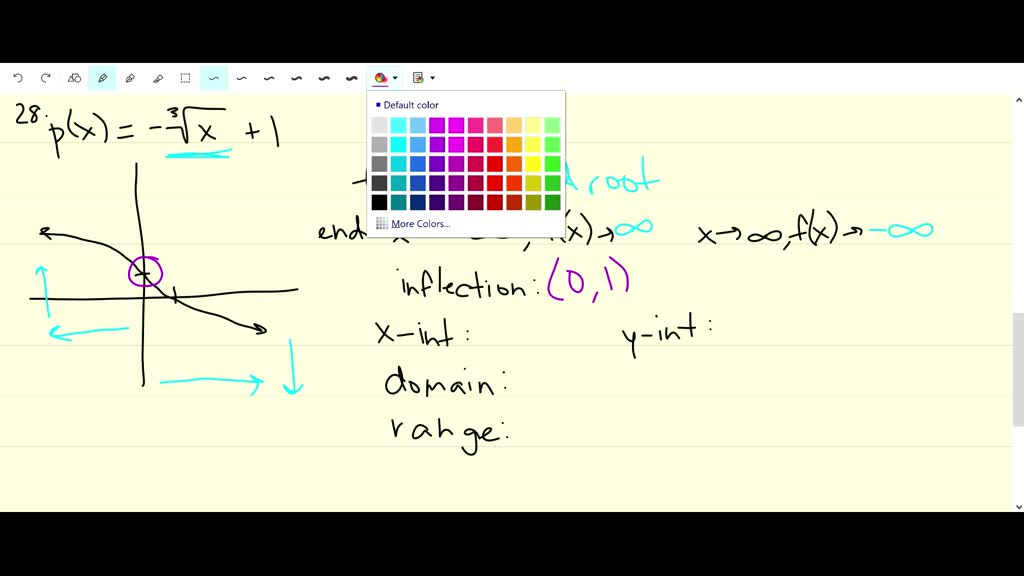 Default color
More Colors...
28. p(x) = -∛x + 1
root
end f(x) → ∞ x → ∞, f(x) → -∞
inflection: (0,1)
x-int: y-int:
domain:
range: